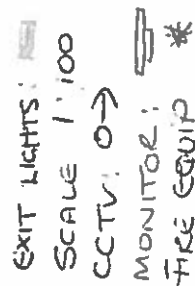 EXIT LIGHTS:
SCALE 1:100
CCTV: O→
MONITOR:
FIRE EQUIP *